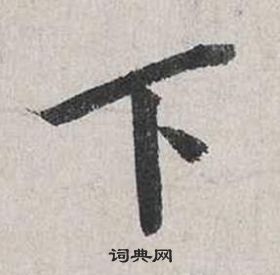 下
词典网